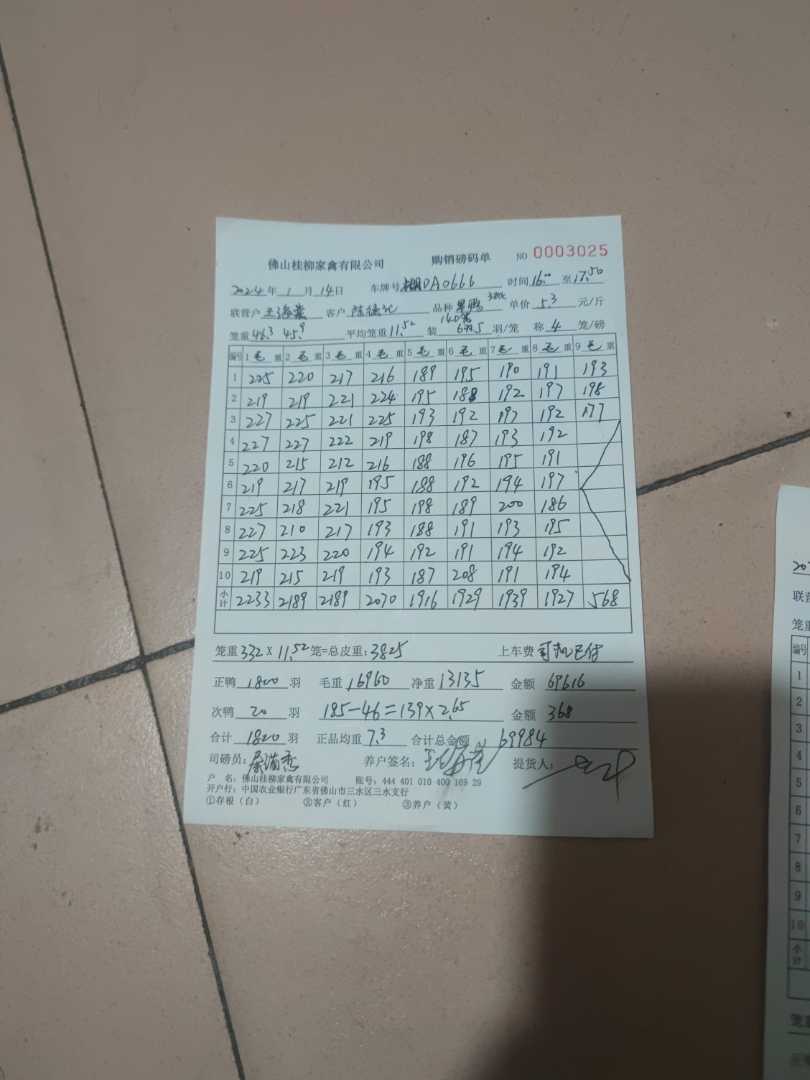 佛山桂柳家禽有限公司 购销磅码单 NO 0003025
2024年 1 月 14日 车牌号 DA0666 时间 16:00 至 17:50
联营户 客户 品种 单价 5.3 元/斤
笼重 46.3 45.9 平均笼重 11.52 装 羽/笼 称 4 笼/磅
编号 1 毛 重 2 毛 重 3 毛 重 4 毛 重 5 毛 重 6 毛 重 7 毛 重 8 毛 重 9 毛 重
1 225 220 217 216 189 195 190 191 193
2 219 219 221 224 195 188 192 197 198
3 227 225 221 225 193 192 197 192 177
4 227 227 222 219 198 187 193 192
5 220 215 212 216 188 196 195 191
6 219 217 219 195 188 192 194 197
7 225 218 221 195 198 189 200 186
8 227 210 217 193 188 191 193 195
9 225 223 220 194 192 191 194 192
10 219 215 219 193 187 208 191 194
小计 2233 2189 2189 2070 1916 1929 1939 1927 568
笼重 332 X 11.52 笼=总皮重: 3825 上车费 司机已付
正鸭 1800 羽 毛重 16960 净重 13135 金额 69616
次鸭 20 羽 185-46=139×2.65 金额 368
合计 1820 羽 正品均重 7.3 合计总金额 69984
司磅员: 养户签名: 提货人:
户 名: 佛山桂柳家禽有限公司 账号: 444 401 010 400 169 29
开户行: 中国农业银行广东省佛山市三水区三水支行
①存根（白） ②客户（红） ③养户（黄）
20
联营
笼重
编号
1
2
3
4
5
6
7
8
9
10
小计
笼重